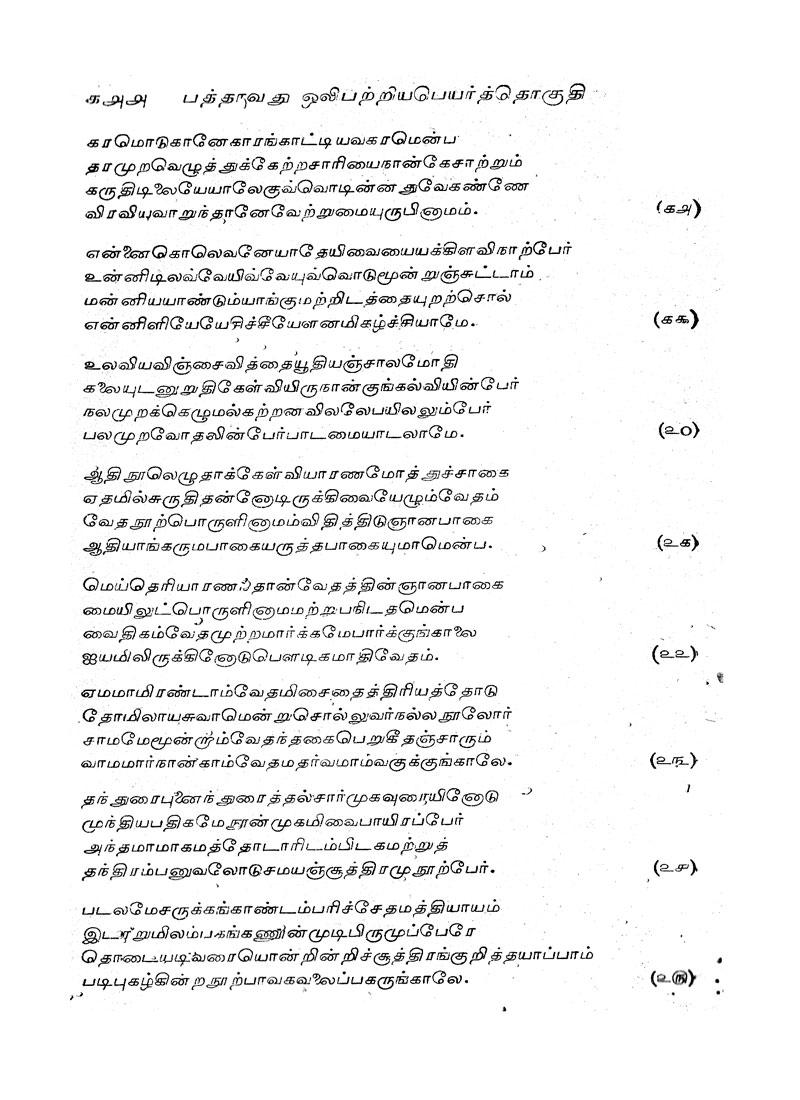 ௧௮௮ பத்தாவது ஒலிபற்றியபெயர்த்தொகுதி
கரமொடுகானேகாரங்காட்டியவகரமென்ப
தரமுறவெழுத்துக்கேற்றசாரியைநான்கேசாற்றும்
கருதிடிலையேயாலேகுவ்வொடின்னதுவேகண்ணே
விரவியுவாறுந்தானேவேற்றுமையுருபினாமம். (௧௮)
என்னைகொலெவனேயாதேயிவையையக்கிளவிநாற்பேர்
உன்னிடிலவ்வேயிவ்வேயுவ்வொடுமூன்றுஞ்சுட்டாம்
மன்னியயாண்டும்யாங்குமற்றிடத்தையுறற்சொல்
என்னிளியேயேசிச்சீயேளனமிகழ்ச்சியாமே. (௧௯)
உலவியவிஞ்சைவித்தையூதியஞ்சாலமோதி
கலையுடனுறுதிகேள்வியிருநான்குங்கல்வியின்பேர்
நலமுறக்கெழுமல்கற்றனவிலலேபயிலலும்பேர்
பலமுறவோதலின்பேர்பாடமையாடலாமே. (௨௦)
ஆதிநூலெழுதாக்கேள்வியாரணமோத்துச்சாகை
ஏதமில்சுருதிதன்னோடிருக்கிவையேழும்வேதம்
வேதநூற்பொருளினாமம்விதித்திடுஞானபாகை
ஆதியாங்கருமபாகையருத்தபாகையுமாமென்ப. (௨௧)
மெய்தெரியாரணந்தான்வேதத்தின்ஞானபாகை
மையிலுட்பொருளினாமமற்றுபநிடதமென்ப
வைதிகம்வேதமுற்றமார்க்கமேபார்க்குங்காலை
ஐயமிலிருக்கினோடுபௌடிகமாதிவேதம். (௨௨)
ஏமமாமிரண்டாம்வேதமிசைதைத்திரியத்தோடு
தோமிலாயசுவாமென்றுசொல்லுவர்நல்லநூலோர்
சாமமேமூன்றாம்வேதந்தகைபெறுகீதஞ்சாரும்
வாமமார்நான்காம்வேதமதர்வமாம்வகுக்குங்காலே. (௨௩)
தந்துரைபுனைந்துரைத்தல்சார்முகவுரையினோடு
முந்தியபதிகமேநூன்முகமிவைபாயிரப்பேர்
அந்தமாமாகமத்தோடாரிடம்பிடகமற்றுத்
தந்திரம்பனுவலோடுசமயஞ்சூத்திரமுநூற்பேர். (௨௪)
படலமேசருக்கங்காண்டம்பரிச்சேதமத்தியாயம்
இடரறுமிலம்பகங்கணூன்முடிபிருமுப்பேரே
தொடையடிவரையொன்றின்றிச்சூத்திரங்குறித்தயாப்பாம்
படிபுகழ்கின்றநூற்பாவகவலைப்பகருங்காலே. (௨௫)